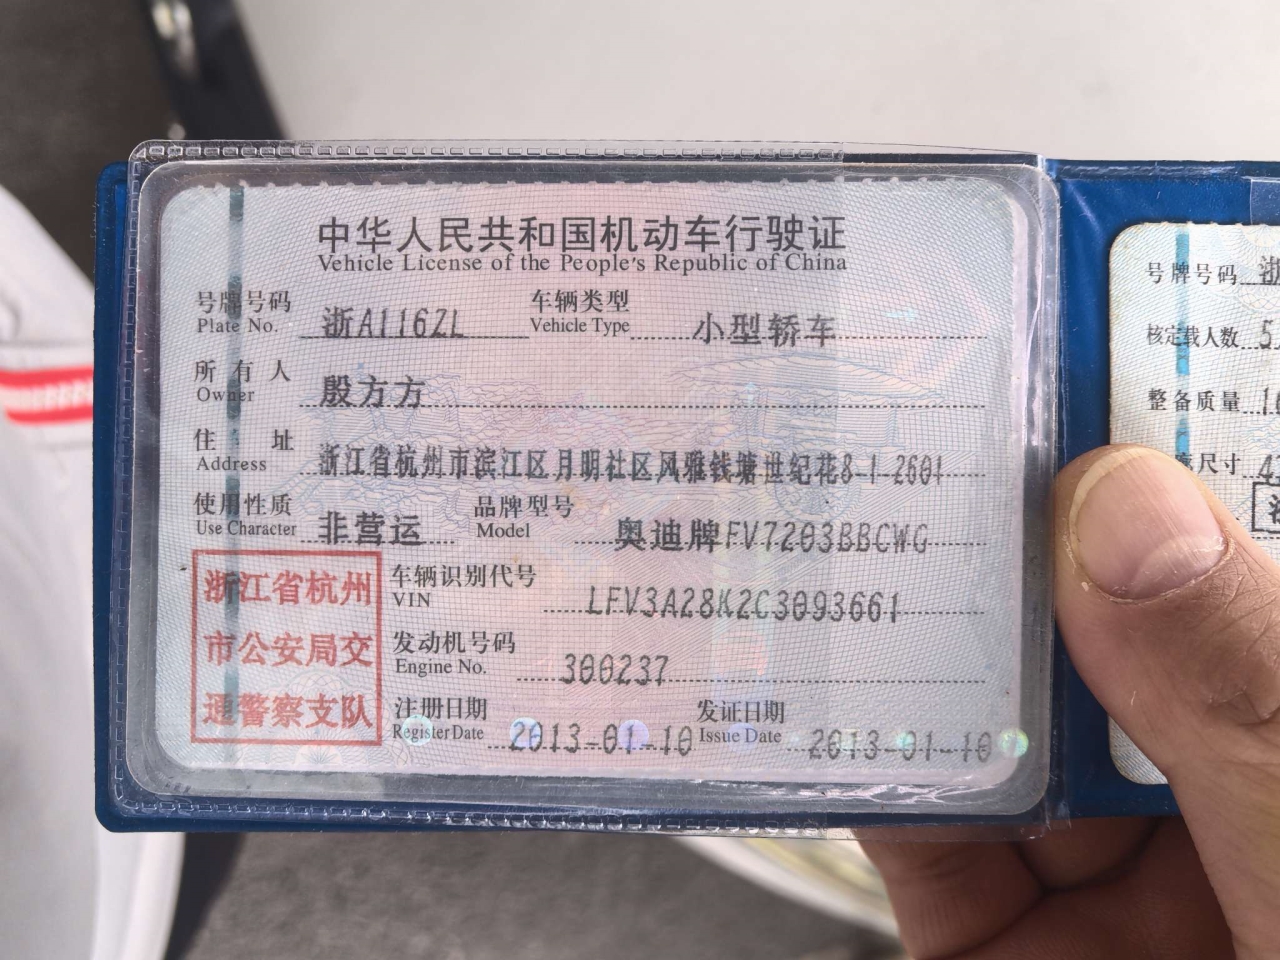 中华人民共和国机动车行驶证
Vehicle License of the People's Republic of China
号牌号码 浙A116ZL 车辆类型 小型轿车
Plate No. Vehicle Type
所有人 殷方方
Owner
住址 浙江省杭州市滨江区月明社区风雅钱塘世纪花8-1-2601
Address
使用性质 非营运 品牌型号 奥迪牌FV7203BBCWG
Use Character Model
浙江省杭州
市公安局交
通警察支队
车辆识别代号 LFV3A28K2C3093661
VIN
发动机号码 300237
Engine No.
注册日期 2013-01-10 发证日期 2013-01-10
Register Date Issue Date
号牌号码 浙
核定载人数 5
整备质量 16
尺寸